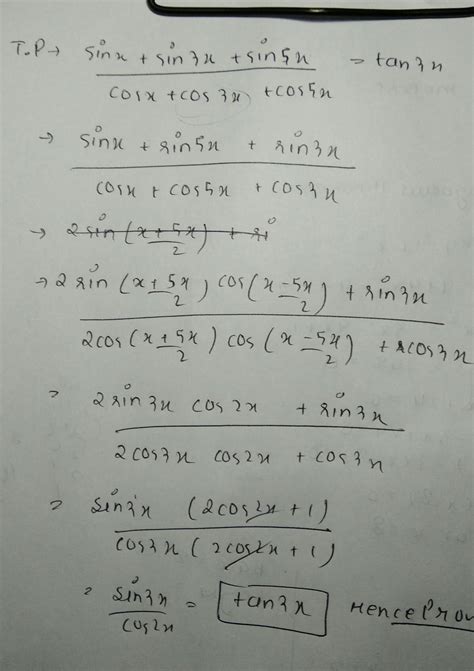 T.P → sinx + sin3x + sin5x / cosx + cos3x + cos5x = tan3x
→ sinx + sin5x + sin3x / cosx + cos5x + cos3x
→ 2 sin (x+5x/2) + si
→ 2 sin (x+5x/2) cos(x-5x/2) + sin3x / 2cos(x+5x/2) cos(x-5x/2) + cos3x
= 2 sin3x cos2x + sin3x / 2cos3x cos2x + cos3x
= sin3x (2cos2x + 1) / cos3x (2cos2x + 1)
= sin3x / cos2x = tan3x Hence Prov